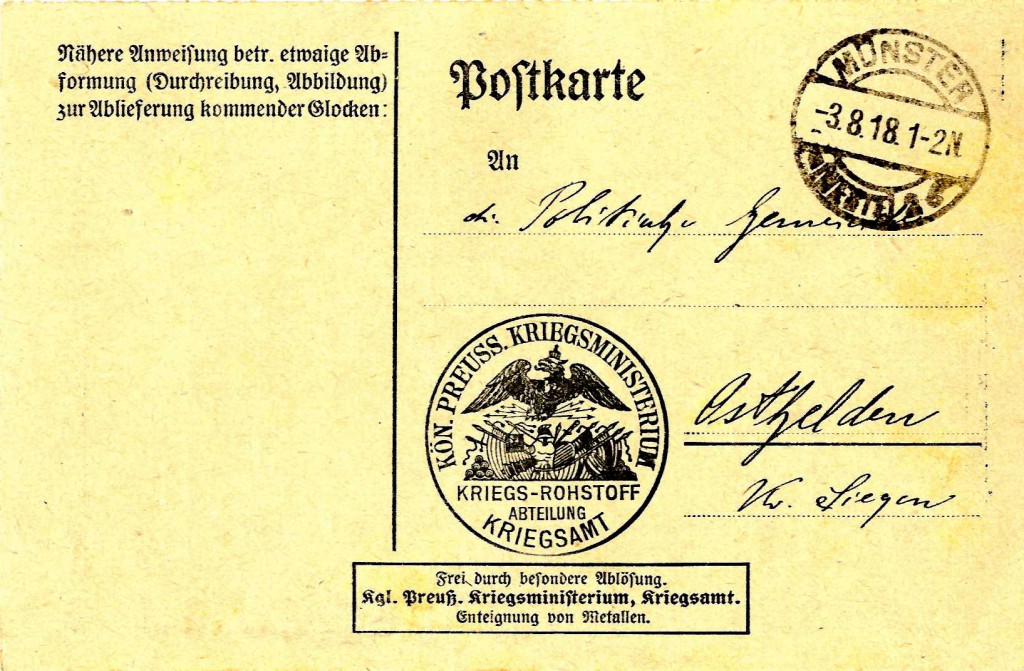 Nähere Anweisung betr. etwaige Ab-
formung (Durchreibung, Abbildung)
zur Ablieferung kommender Glocken:
Postkarte
MÜNSTER
-3.8.18.1-2N.
An
die Gemeinde
KÖN. PREUSS. KRIEGSMINISTERIUM
KRIEGS-ROHSTOFF
ABTEILUNG
KRIEGSAMT
Osthelden
Kr. Siegen
Frei durch besondere Ablösung.
Kgl. Preuß. Kriegsministerium, Kriegsamt.
Enteignung von Metallen.